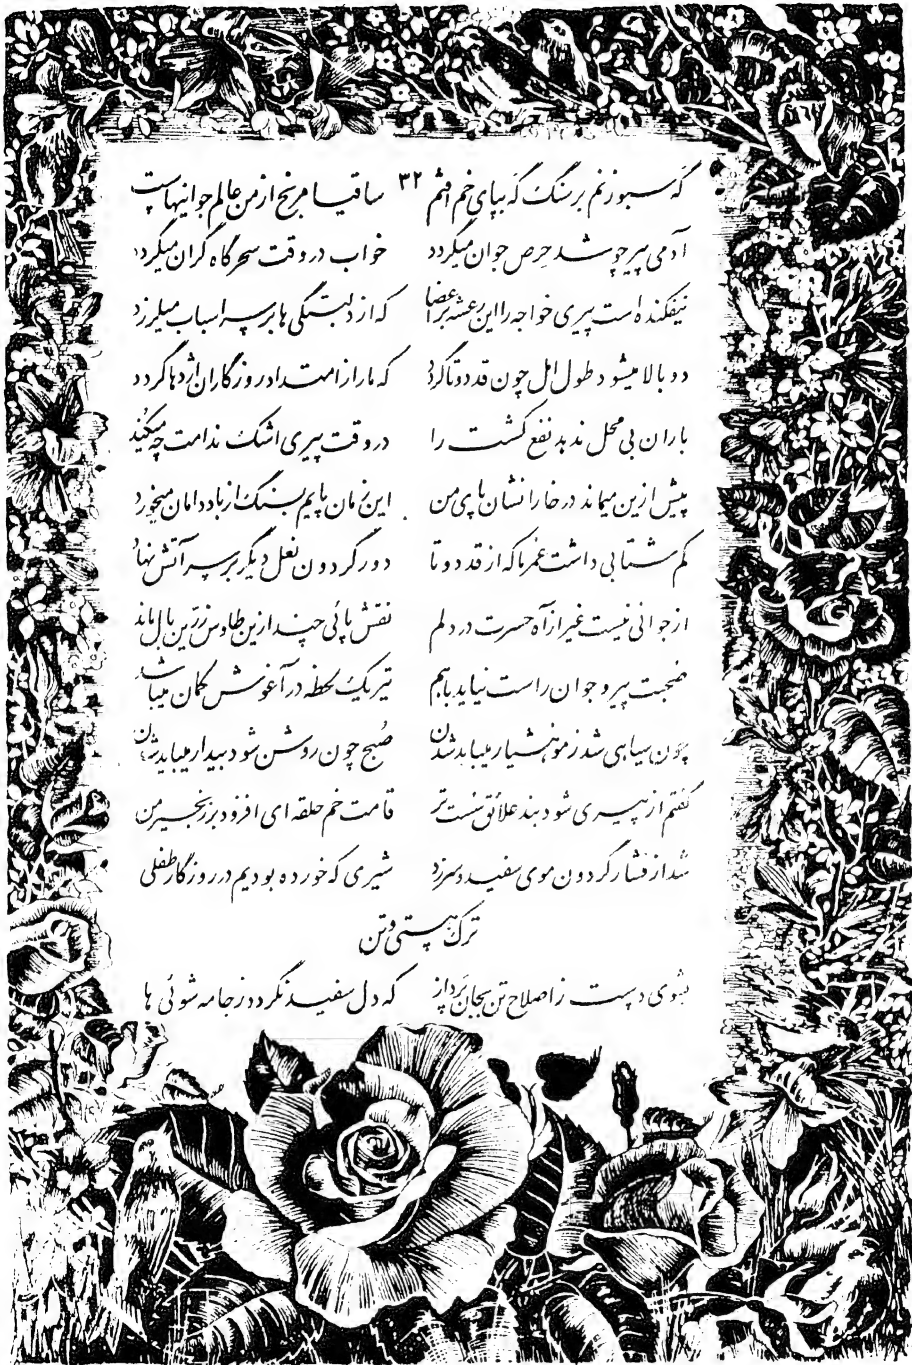 گه سبو زنم بر سنگ گه بپای خم افتم ۳۲ ساقیا مرنج از من عالم جوانیهاست
آدمی پیر چو شد حرص جوان میگردد خواب در وقت سحرگاه گران میگردد
نیفکنده است پیری خواجه را این رعشه بر اعضا که از دلبستگی ها بر سر اسباب میلرزد
دو بالا میشود طول امل چون قد دوتا گردد که مار از امتداد روزگاران اژدها گردد
باران بی محل ندهد نفع کشت را در وقت پیری اشک ندامت چه میکند
پیش ازین میماند در خارا نشان پای من این زمان پایم بسنگ از باد دامان میخورد
کم شتابی داشت عمر ما که از قد دوتا دور گردون نعل دیگر بر سر آتش نهاد
از جوانی نیست غیر از آه حسرت در دلم نقش پائی چند ازین طاوس زرین بال ماند
صحبت پیر و جوان راست نیاید باهم تیر یک لحظه در آغوش کمان میباشد
چون سیاهی شد ز مو هشیار میباید شدن صبح چون روشن شود بیدار میباید شدن
گفتم از پیری شود بند علائق سست تر قامت خم حلقه ای افزود بر زنجیر من
شد از فشار گردون موی سفید و سر زد شیری که خورده بودیم در روزگار طفلی
ترک هستی و تن
بشوی دست ز اصلاح تن بجان پرداز که دل سفید نگردد ز جامه شوئی ها